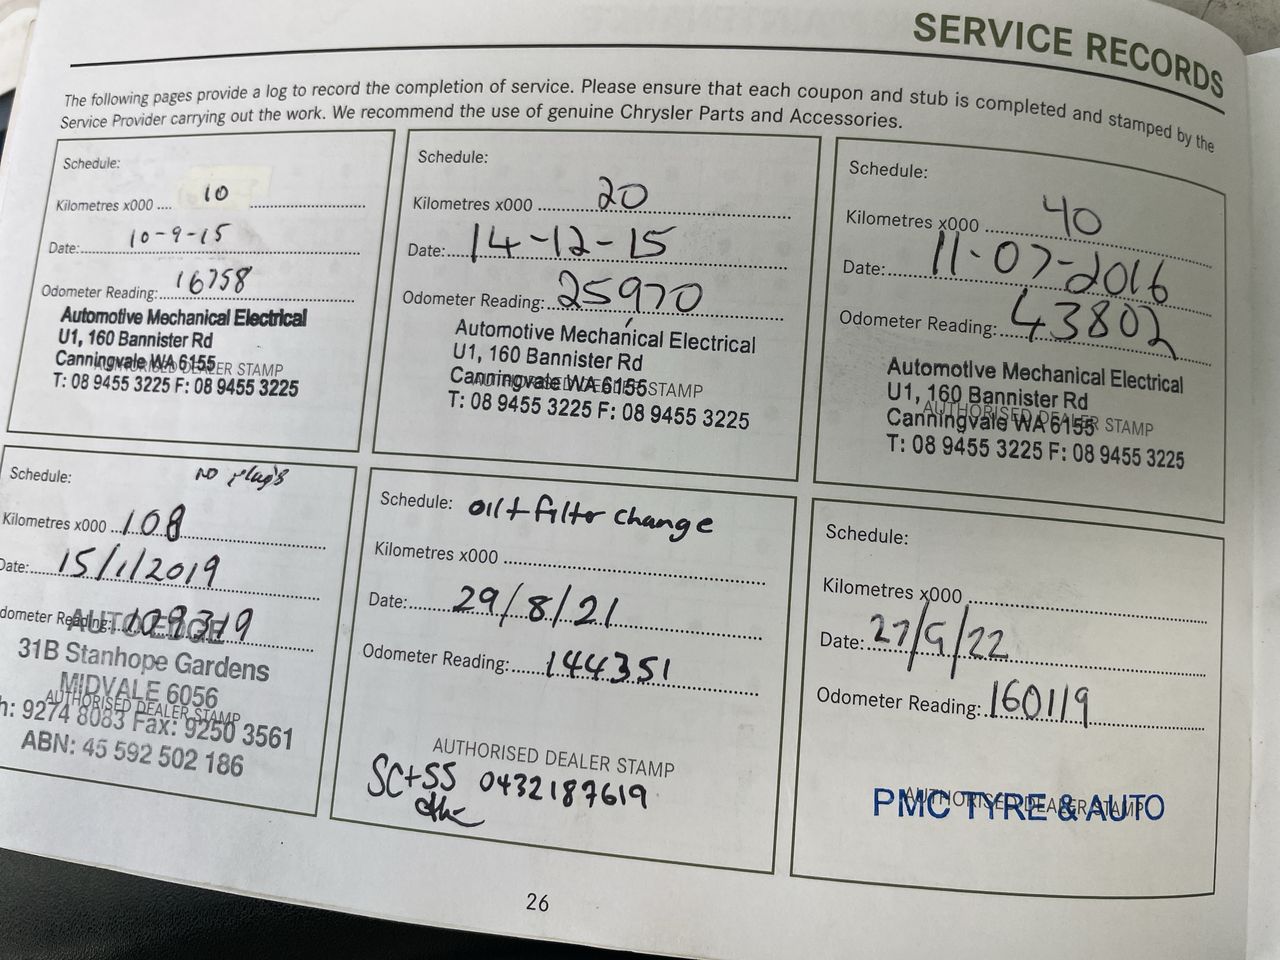 SERVICE RECORDS
The following pages provide a log to record the completion of service. Please ensure that each coupon and stub is completed and stamped by the
Service Provider carrying out the work. We recommend the use of genuine Chrysler Parts and Accessories.
Schedule:
Kilometres x000 .... 10
Date: 10-9-15
Odometer Reading: 16758
AUTHORISED DEALER STAMP
Automotive Mechanical Electrical
U1, 160 Bannister Rd
Canningvale WA 6155
T: 08 9455 3225 F: 08 9455 3225
Schedule:
Kilometres x000 20
Date: 14-12-15
Odometer Reading: 25970
AUTHORISED DEALER STAMP
Automotive Mechanical Electrical
U1, 160 Bannister Rd
Canningvale WA 6155
T: 08 9455 3225 F: 08 9455 3225
Schedule:
Kilometres x000 40
Date: 11-07-2016
Odometer Reading: 43802
AUTHORISED DEALER STAMP
Automotive Mechanical Electrical
U1, 160 Bannister Rd
Canningvale WA 6155
T: 08 9455 3225 F: 08 9455 3225
Schedule: no plug's
Kilometres x000 108
Date: 15/1/2019
dometer Reading: 109319
AUTHORISED DEALER STAMP
AUTO EDGE
31B Stanhope Gardens
MIDVALE 6056
h: 9274 8083 Fax: 9250 3561
ABN: 45 592 502 186
Schedule: oil + filter change
Kilometres x000
Date: 29/8/21
Odometer Reading: 144351
AUTHORISED DEALER STAMP
SC+SS 0432187619
Schedule:
Kilometres x000
Date: 27/9/22
Odometer Reading: 160119
AUTHORISED DEALER STAMP
PMC TYRE & AUTO
26